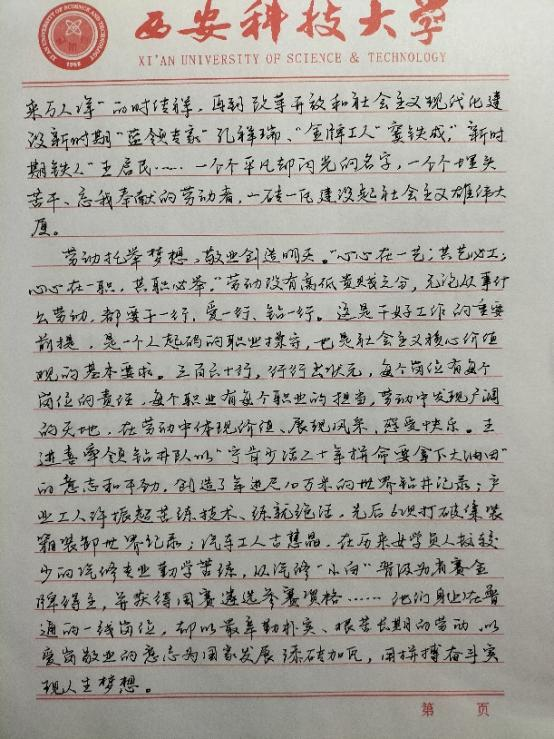 西安科技大学
XI'AN UNIVERSITY OF SCIENCE & TECHNOLOGY
XI'AN UNIVERSITY OF SCIENCE AND TECHNOLOGY
1958
来万人净"的时传祥，再到改革开放和社会主义现代化建
设新时期"蓝领专家"孔祥瑞、"金牌工人"窦铁成，"新时
期铁人"王启民……一个个平凡却闪光的名字，一个个埋头
苦干、忘我奉献的劳动者，一砖一瓦建设起社会主义雄伟大
厦。
劳动托举梦想，敬业创造明天。"心心在一艺，其艺必工；
心心在一职，其职必举。"劳动没有高低贵贱之分，无论从事什
么劳动，都要干一行、爱一行、钻一行。这是干好工作的重要
前提，是一个人起码的职业操守，也是社会主义核心价值
观的基本要求。三百六十行，行行出状元，每个岗位有每个
岗位的责任，每个职业有每个职业的担当，劳动中发现广阔
的天地，在劳动中体现价值、展现风采、感受快乐。王
进喜率领钻井队以"宁肯少活二十年拼命要拿下大油田"
的意志和干劲，创造了年进尺10万米的世界钻井纪录；产
业工人许振超苦练技术、练就绝活，先后6次打破集装
箱装卸世界纪录；汽车工人古慧晶，在历来女学员人数较
少的汽修专业勤学苦练，从汽修"小白"晋级为省赛金
牌得主，并获得国赛遴选参赛资格……他们身处在普
通的一线岗位，却以最辛勤朴实、艰苦长期的劳动，以
爱岗敬业的意志为国家发展添砖加瓦，用拼搏奋斗实
现人生梦想。
第 页